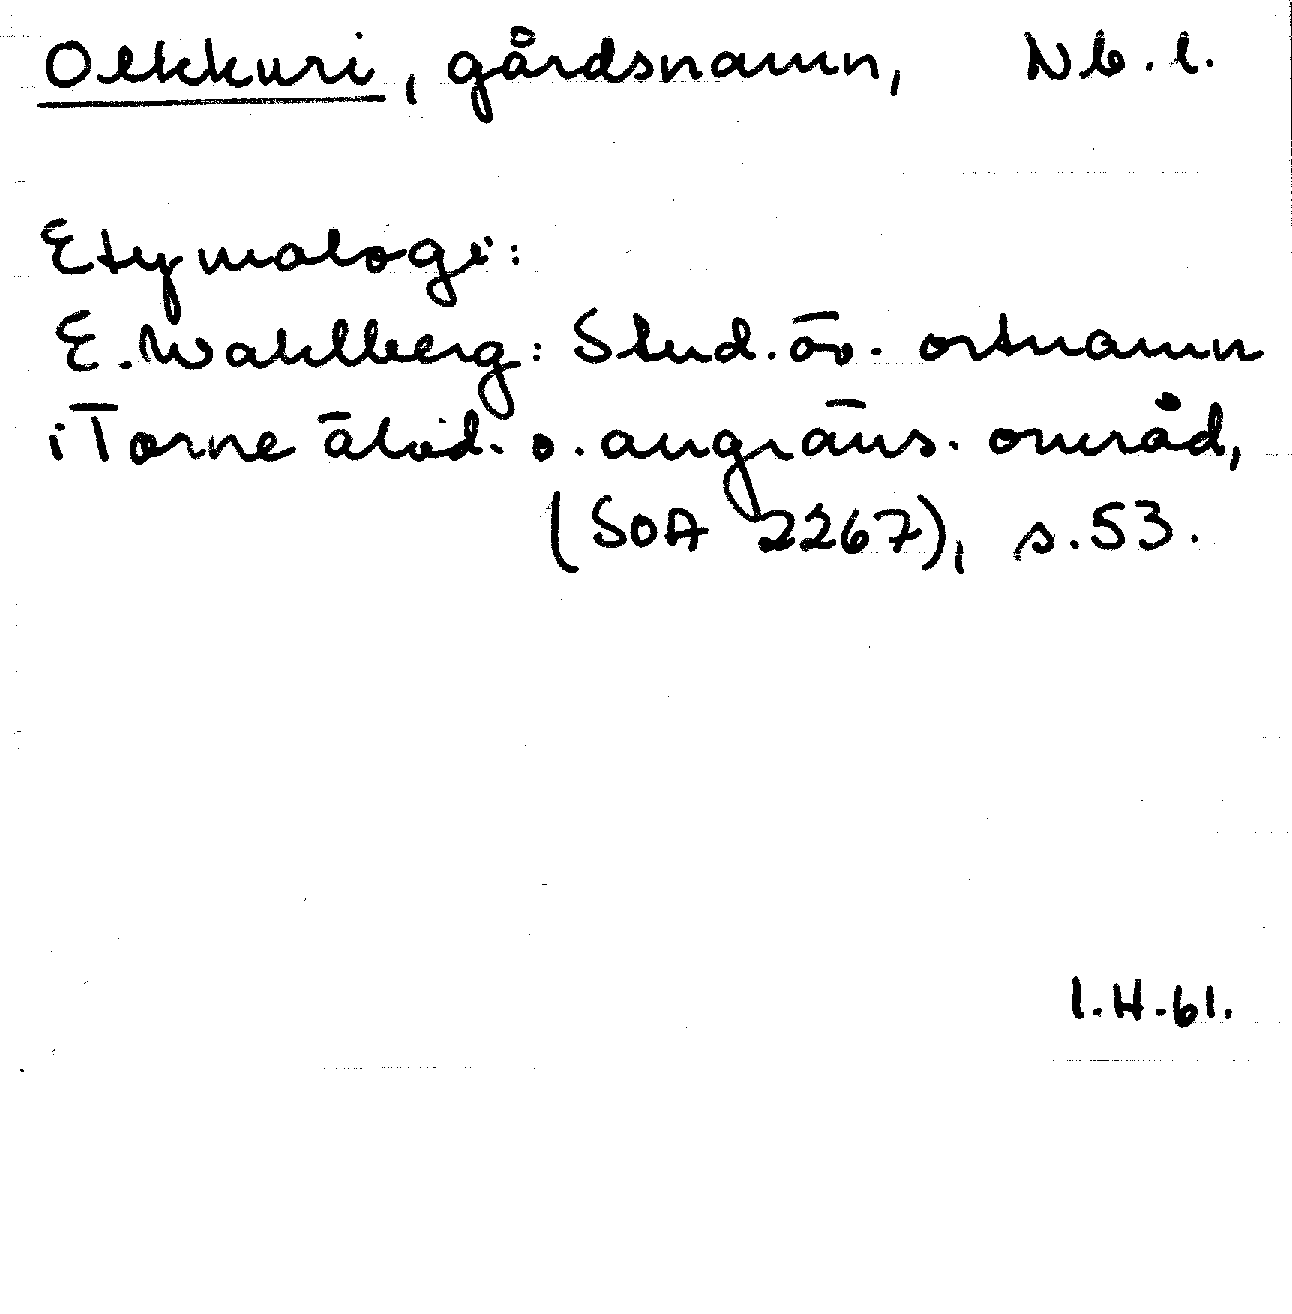 Olkkuri, gårdsnamn, Nb. l.
Etymologi:
E. Wahlberg: Stud. öv. ortnamn
i Torne älvd. o. angräns. områd,
(SOA 2267), s. 53.
I.H-61.